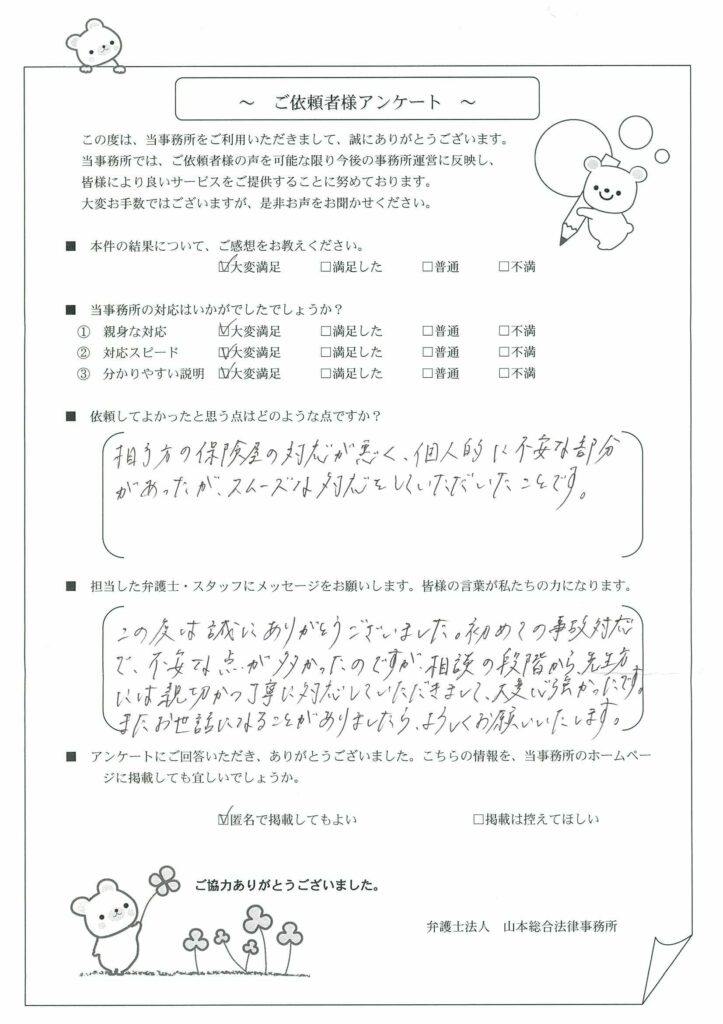 ～ ご依頼者様アンケート ～
この度は、当事務所をご利用いただきまして、誠にありがとうございます。
当事務所では、ご依頼者様の声を可能な限り今後の事務所運営に反映し、
皆様により良いサービスをご提供することに努めております。
大変お手数ではございますが、是非お声をお聞かせください。
■ 本件の結果について、ご感想をお教えください。
☑大変満足 □満足した □普通 □不満
■ 当事務所の対応はいかがでしたでしょうか？
① 親身な対応 ☑大変満足 □満足した □普通 □不満
② 対応スピード ☑大変満足 □満足した □普通 □不満
③ 分かりやすい説明 ☑大変満足 □満足した □普通 □不満
■ 依頼してよかったと思う点はどのような点ですか？
相手方の保険屋の対応が悪く、個人的に不安な部分
があったが、スムーズな対応をしていただいたことです。
■ 担当した弁護士・スタッフにメッセージをお願いします。皆様の言葉が私たちの力になります。
この度は誠にありがとうございました。初めての事故対応
で、不安な点が多かったのですが、相談の段階から、先生方
には親切かつ丁寧に対応していただきまして、大変心強かったです。
またお世話になることがありましたら、よろしくお願いいたします。
■ アンケートにご回答いただき、ありがとうございました。こちらの情報を、当事務所のホームペー
ジに掲載しても宜しいでしょうか。
☑匿名で掲載してもよい □掲載は控えてほしい
ご協力ありがとうございました。
弁護士法人 山本総合法律事務所